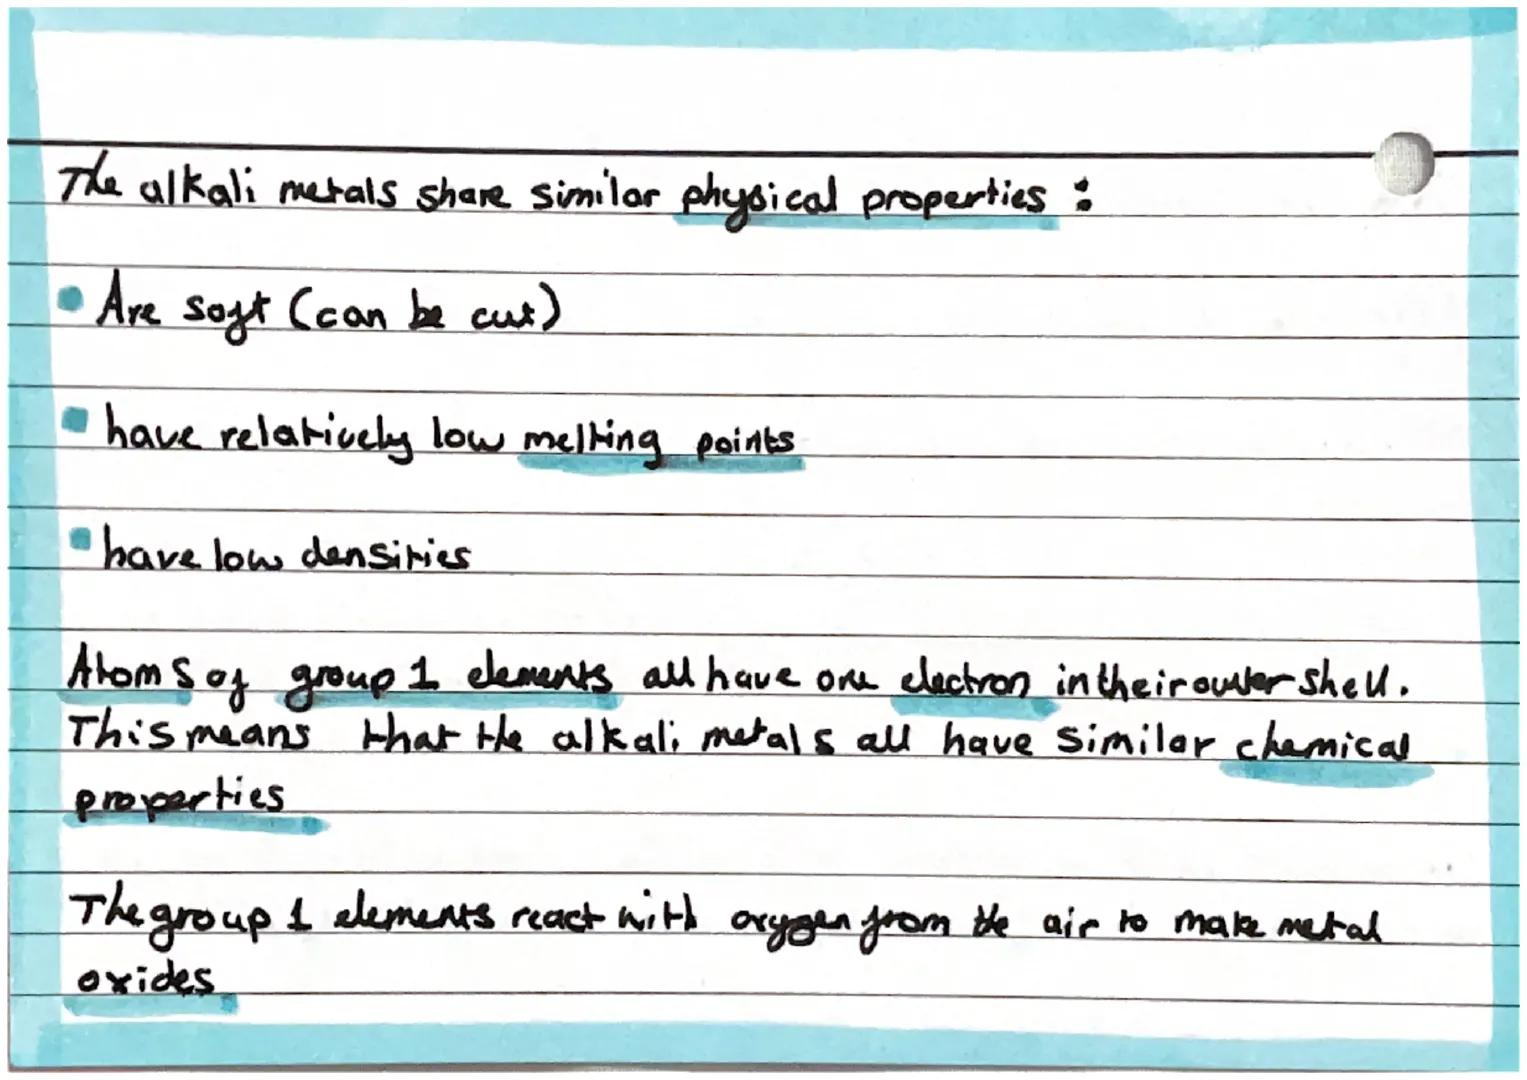 The alkali metals share similar physical properties :
• Are soft (can be cut)
• have relatively low melting points
• have low densities
Atoms of group 1 elements all have one electron in their outer shell.
This means that the alkali metals all have similar chemical
properties
The group 1 elements react with oxygen from the air to make metal
oxides